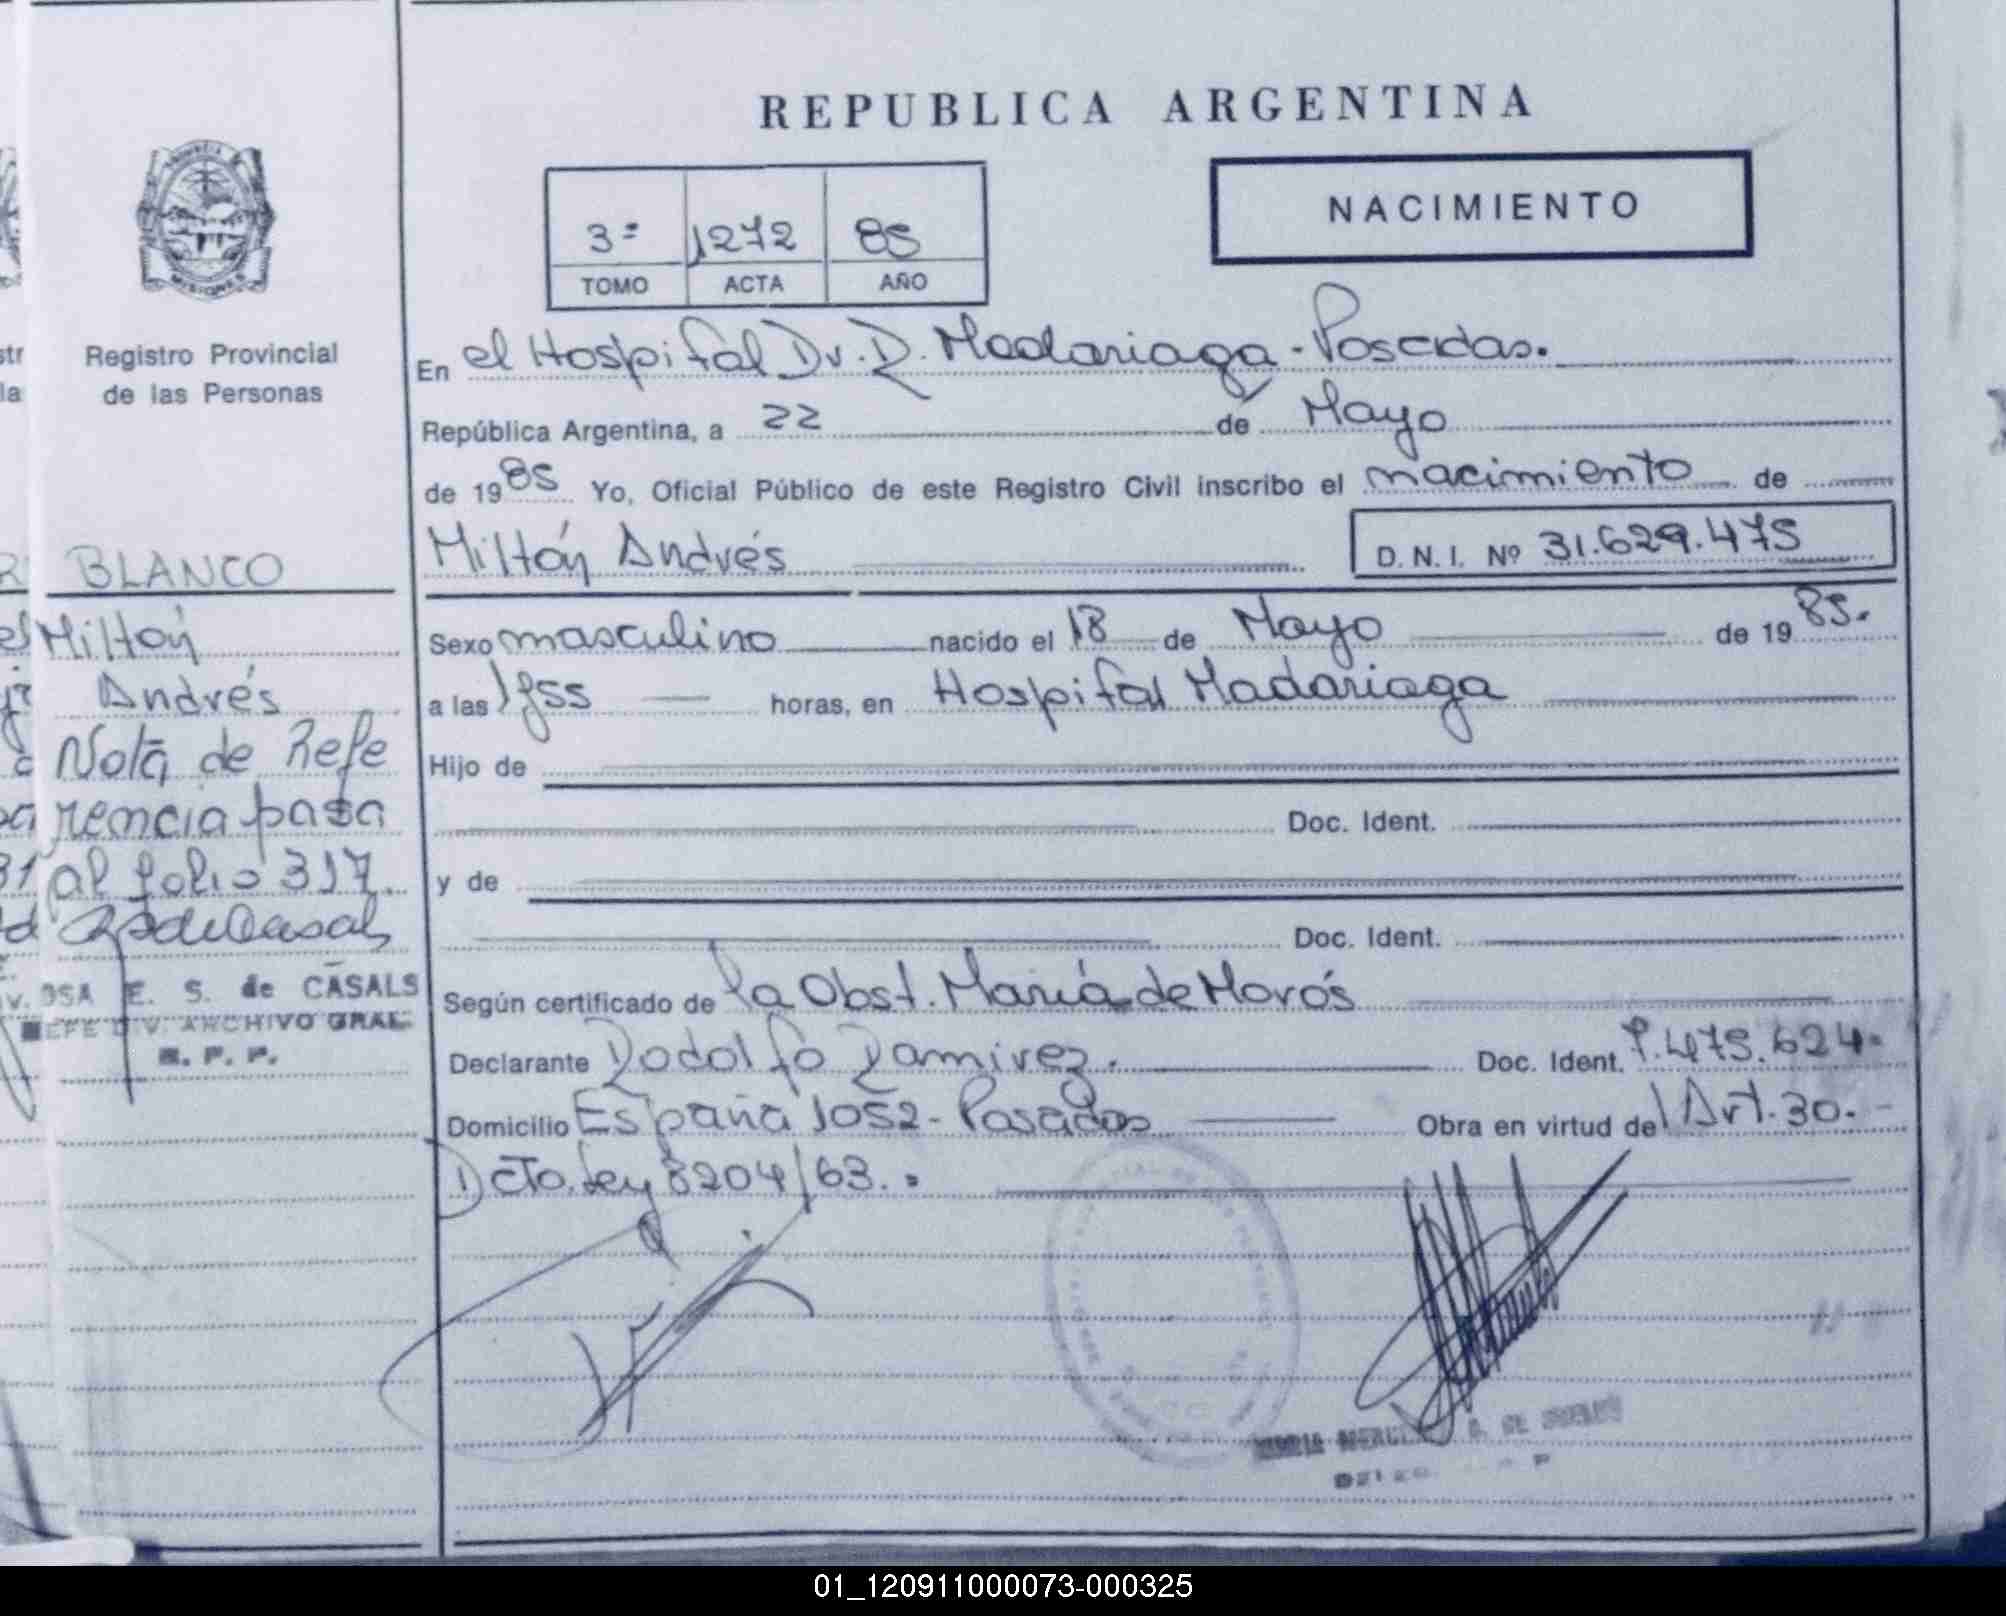 REPUBLICA ARGENTINA
NACIMIENTO
3º 1272 85
TOMO ACTA AÑO
MISIONES
Registro Provincial
de las Personas
BLANCO
Miltón
Andrés
Nota de Refe
rencia pasa
al folio 317
E. S. de CASALS
JEFE DIV. ARCHIVO GRAL.
R. P. P.
En el Hospital Dr. R. Madariaga - Posadas.
República Argentina, a 22 de Mayo
de 1985 Yo, Oficial Público de este Registro Civil inscribo el nacimiento de
Miltón Andrés D. N. I. Nº 31.629.475
Sexo masculino nacido el 18 de Mayo de 1985.
a las horas, en Hospital Madariaga
Hijo de
Doc. Ident.
y de
Doc. Ident.
Según certificado de la Obst. María de Morós
Declarante Rodolfo Ramirez. Doc. Ident. 7.475.624.
Domicilio España 1052 - Posadas Obra en virtud del Art. 30.
Dcto. Ley 8204/63.
01_120911000073-000325